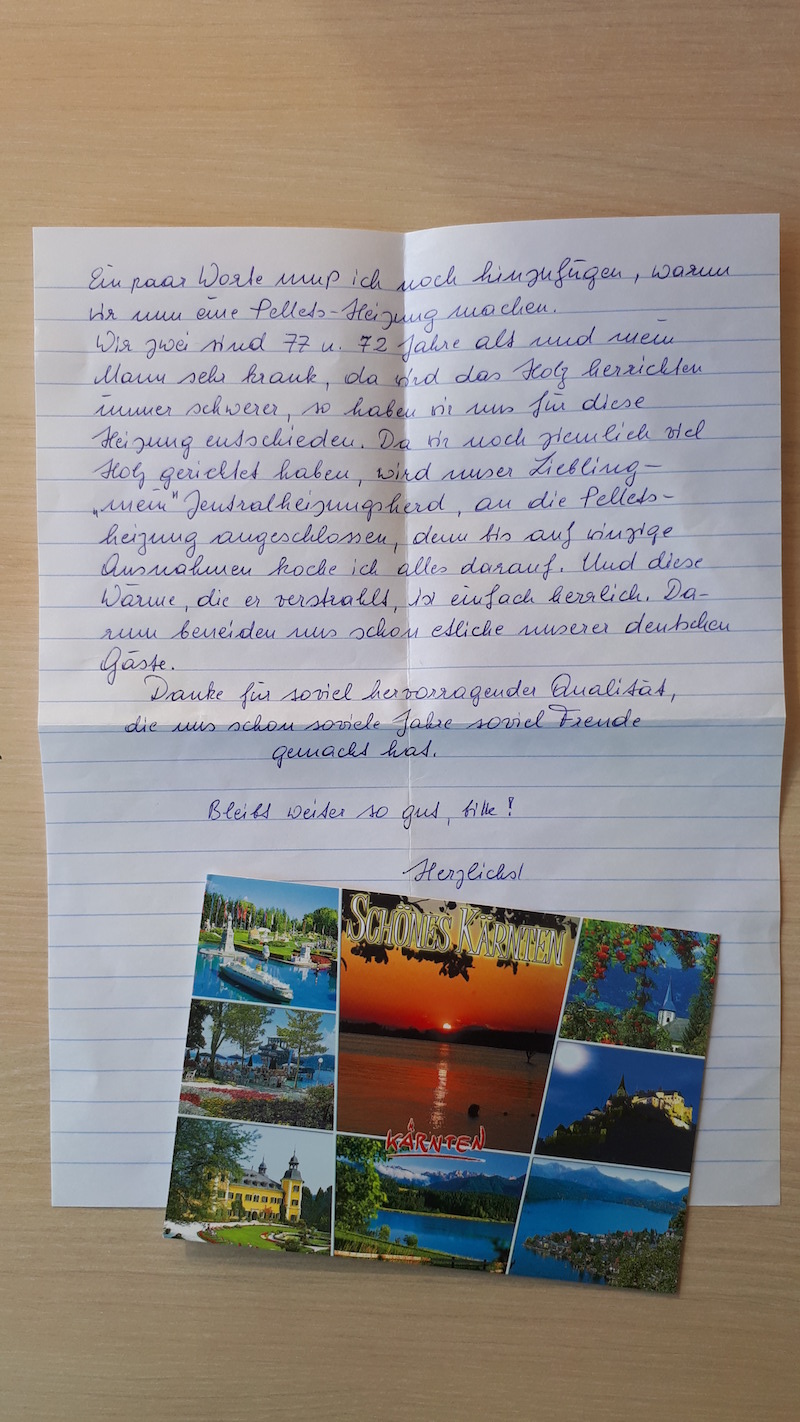 Ein paar Worte muß ich noch hinzufügen, warum
wir nun eine Pellets-Heizung machen.
Wir zwei sind 77 u. 72 Jahre alt und mein
Mann sehr krank, da wird das Holz herrichten
immer schwerer, so haben wir uns für diese
Heizung entschieden. Da wir noch ziemlich viel
Holz gerichtet haben, wird unser Liebling-
„mein" Zentralheizungsherd, an die Pellets-
heizung angeschlossen, denn bis auf winzige
Ausnahmen koche ich alles darauf. Und diese
Wärme, die er verstrahlt, ist einfach herrlich. Da-
rum beneiden uns schon etliche unserer deutschen
Gäste.
Danke für soviel hervorragender Qualität,
die uns schon soviele Jahre soviel Freude
gemacht hat.
Bleibt weiter so gut, bitte!
Herzlichst
SCHÖNES KÄRNTEN
KÄRNTEN